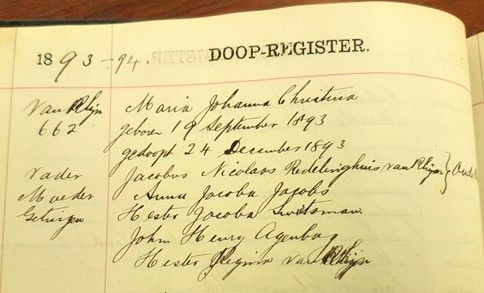 1893-94. DOOP-REGISTER.
van Rhijn Maria Johanna Christina
662 geboren 19 September 1893
gedoopt 24 December 1893
Vader Jacobus Nicolaas Redelinghuis van Rhijn }
Moeder Anna Jacoba Jacobs
Getuigen Hester Jacoba
John Henry Agenbag
Hester Regina van Rhijn